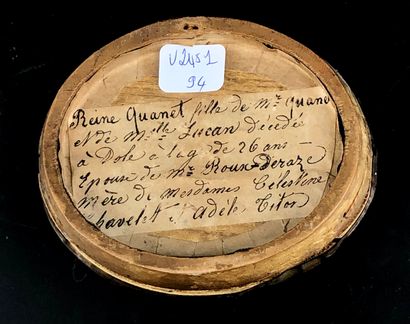 V2451
94
Reine Quanet fille de Mr Quane
et de Melle Lucan décédé
à Dole à l'age de 26 ans —
Epouse de Mr Roux-Deraze
mère de mesdames Célestine
et Adèle Titon